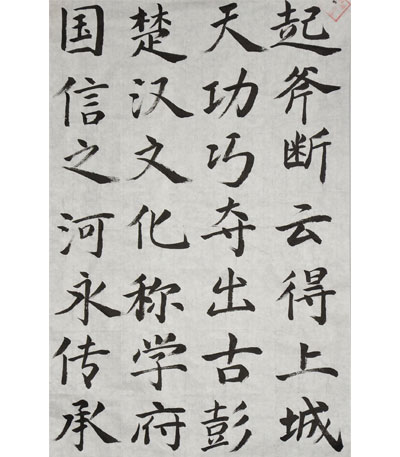 起斧断云得上城
天功巧夺出古彭
楚汉文化称学府
国信之河永传承